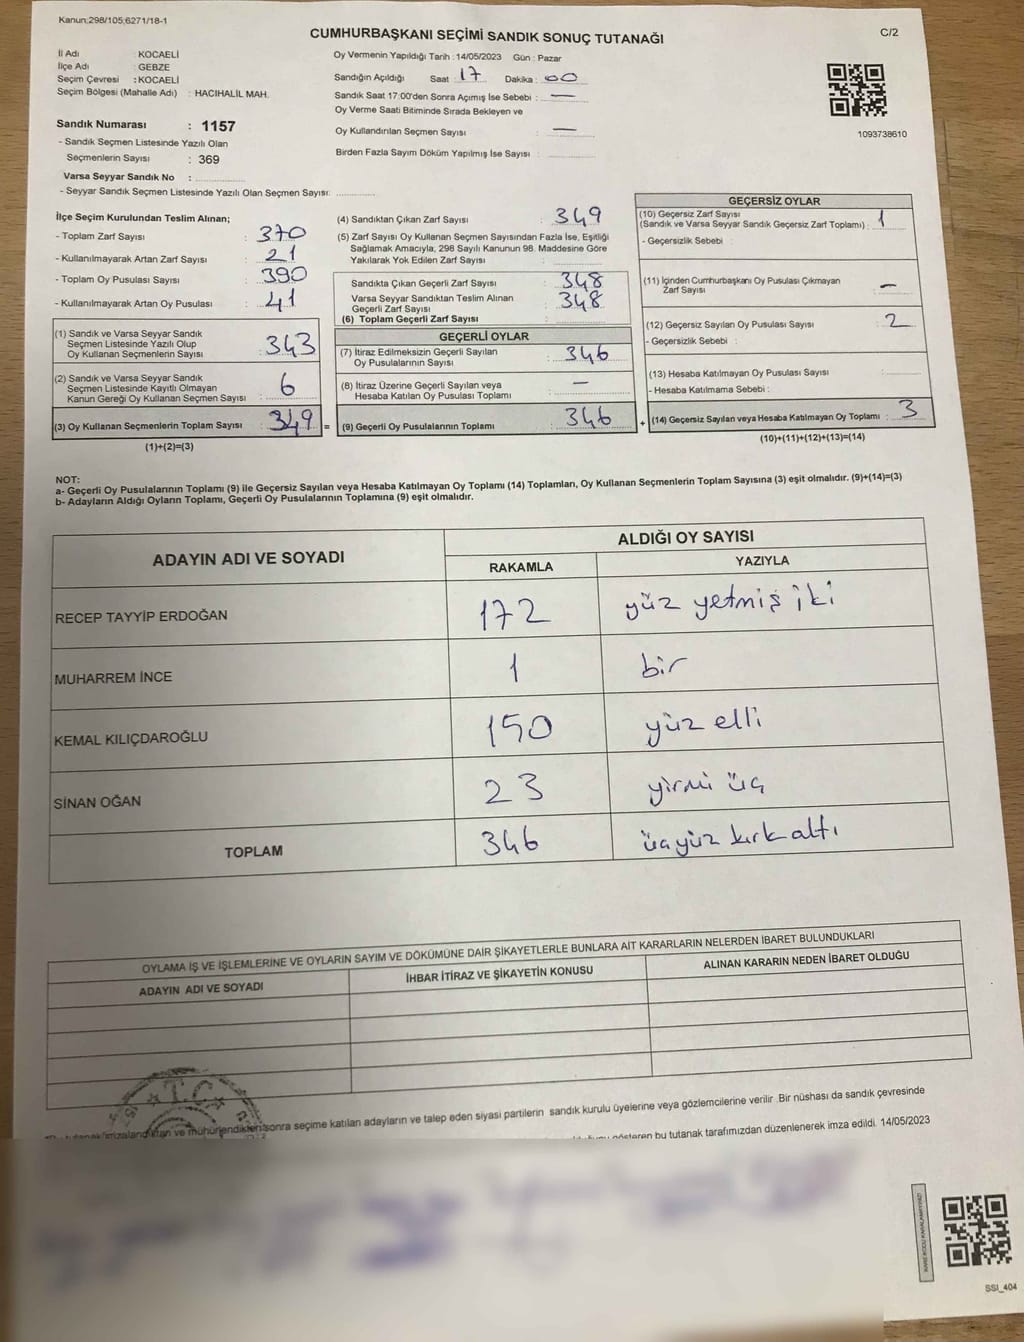 Kanun;298/105;6271/18-1
CUMHURBAŞKANI SEÇİMİ SANDIK SONUÇ TUTANAĞI
C/2
İl Adı : KOCAELİ
İlçe Adı : GEBZE
Seçim Çevresi : KOCAELİ
Seçim Bölgesi (Mahalle Adı) : HACIHALİL MAH.
Sandık Numarası : 1157
- Sandık Seçmen Listesinde Yazılı Olan
Seçmenlerin Sayısı : 369
Varsa Seyyar Sandık No :
- Seyyar Sandık Seçmen Listesinde Yazılı Olan Seçmen Sayısı:
Oy Vermenin Yapıldığı Tarih : 14/05/2023 Gün : Pazar
Sandığın Açıldığı Saat : 17 Dakika : 00
Sandık Saat 17:00'den Sonra Açımış İse Sebebi : —
Oy Verme Saati Bitiminde Sırada Bekleyen ve
Oy Kullandırılan Seçmen Sayısı : —
Birden Fazla Sayım Döküm Yapılmış İse Sayısı :
1093738610
İlçe Seçim Kurulundan Teslim Alınan;
- Toplam Zarf Sayısı : 370
- Kullanılmayarak Artan Zarf Sayısı : 21
- Toplam Oy Pusulası Sayısı : 390
- Kullanılmayarak Artan Oy Pusulası : 41
(1) Sandık ve Varsa Seyyar Sandık
Seçmen Listesinde Yazılı Olup
Oy Kullanan Seçmenlerin Sayısı : 343
(2) Sandık ve Varsa Seyyar Sandık
Seçmen Listesinde Kayıtlı Olmayan
Kanun Gereği Oy Kullanan Seçmen Sayısı : 6
(3) Oy Kullanan Seçmenlerin Toplam Sayısı : 349 =
(1)+(2)=(3)
(4) Sandıktan Çıkan Zarf Sayısı : 349
(5) Zarf Sayısı Oy Kullanan Seçmen Sayısından Fazla İse, Eşitliği
Sağlamak Amacıyla, 298 Sayılı Kanunun 98. Maddesine Göre
Yakılarak Yok Edilen Zarf Sayısı :
Sandıkta Çıkan Geçerli Zarf Sayısı : 348
Varsa Seyyar Sandıktan Teslim Alınan
Geçerli Zarf Sayısı : 348
(6) Toplam Geçerli Zarf Sayısı :
GEÇERLİ OYLAR
(7) İtiraz Edilmeksizin Geçerli Sayılan
Oy Pusulalarının Sayısı : 346
(8) İtiraz Üzerine Geçerli Sayılan veya
Hesaba Katılan Oy Pusulası Toplamı : —
(9) Geçerli Oy Pusulalarının Toplamı : 346 +
GEÇERSİZ OYLAR
(10) Geçersiz Zarf Sayısı
(Sandık ve Varsa Seyyar Sandık Geçersiz Zarf Toplamı) : 1
- Geçersizlik Sebebi :
(11) İçinden Cumhurbaşkanı Oy Pusulası Çıkmayan
Zarf Sayısı : —
(12) Geçersiz Sayılan Oy Pusulası Sayısı : 2
- Geçersizlik Sebebi :
(13) Hesaba Katılmayan Oy Pusulası Sayısı :
- Hesaba Katılmama Sebebi :
(14) Geçersiz Sayılan veya Hesaba Katılmayan Oy Toplamı : 3
(10)+(11)+(12)+(13)=(14)
NOT:
a- Geçerli Oy Pusulalarının Toplamı (9) ile Geçersiz Sayılan veya Hesaba Katılmayan Oy Toplamı (14) Toplamları, Oy Kullanan Seçmenlerin Toplam Sayısına (3) eşit olmalıdır. (9)+(14)=(3)
b- Adayların Aldığı Oyların Toplamı, Geçerli Oy Pusulalarının Toplamına (9) eşit olmalıdır.
ADAYIN ADI VE SOYADI
ALDIĞI OY SAYISI
RAKAMLA YAZIYLA
RECEP TAYYİP ERDOĞAN 172 yüz yetmiş iki
MUHARREM İNCE 1 bir
KEMAL KILIÇDAROĞLU 150 yüz elli
SİNAN OĞAN 23 yirmi üç
TOPLAM 346 üçyüz kırk altı
OYLAMA İŞ VE İŞLEMLERİNE VE OYLARIN SAYIM VE DÖKÜMÜNE DAİR ŞİKAYETLERLE BUNLARA AİT KARARLARIN NELERDEN İBARET BULUNDUKLARI
ADAYIN ADI VE SOYADI İHBAR İTİRAZ VE ŞİKAYETİN KONUSU ALINAN KARARIN NEDEN İBARET OLDUĞU
T.C.
tutanak imzalandıktan ve mühürlendikten sonra seçime katılan adayların ve talep eden siyasi partilerin sandık kurulu üyelerine veya gözlemcilerine verilir .Bir nüshası da sandık çevresinde
gösteren bu tutanak tarafımızdan düzenlenerek imza edildi. 14/05/2023
KARE KODU KARALAMAYINIZ!
SSI_404